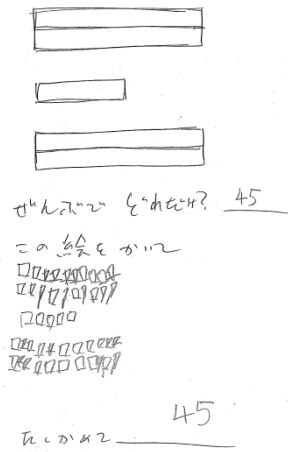 ぜんぶで どれだけ? 45
この絵をかいて
45
たしかめて